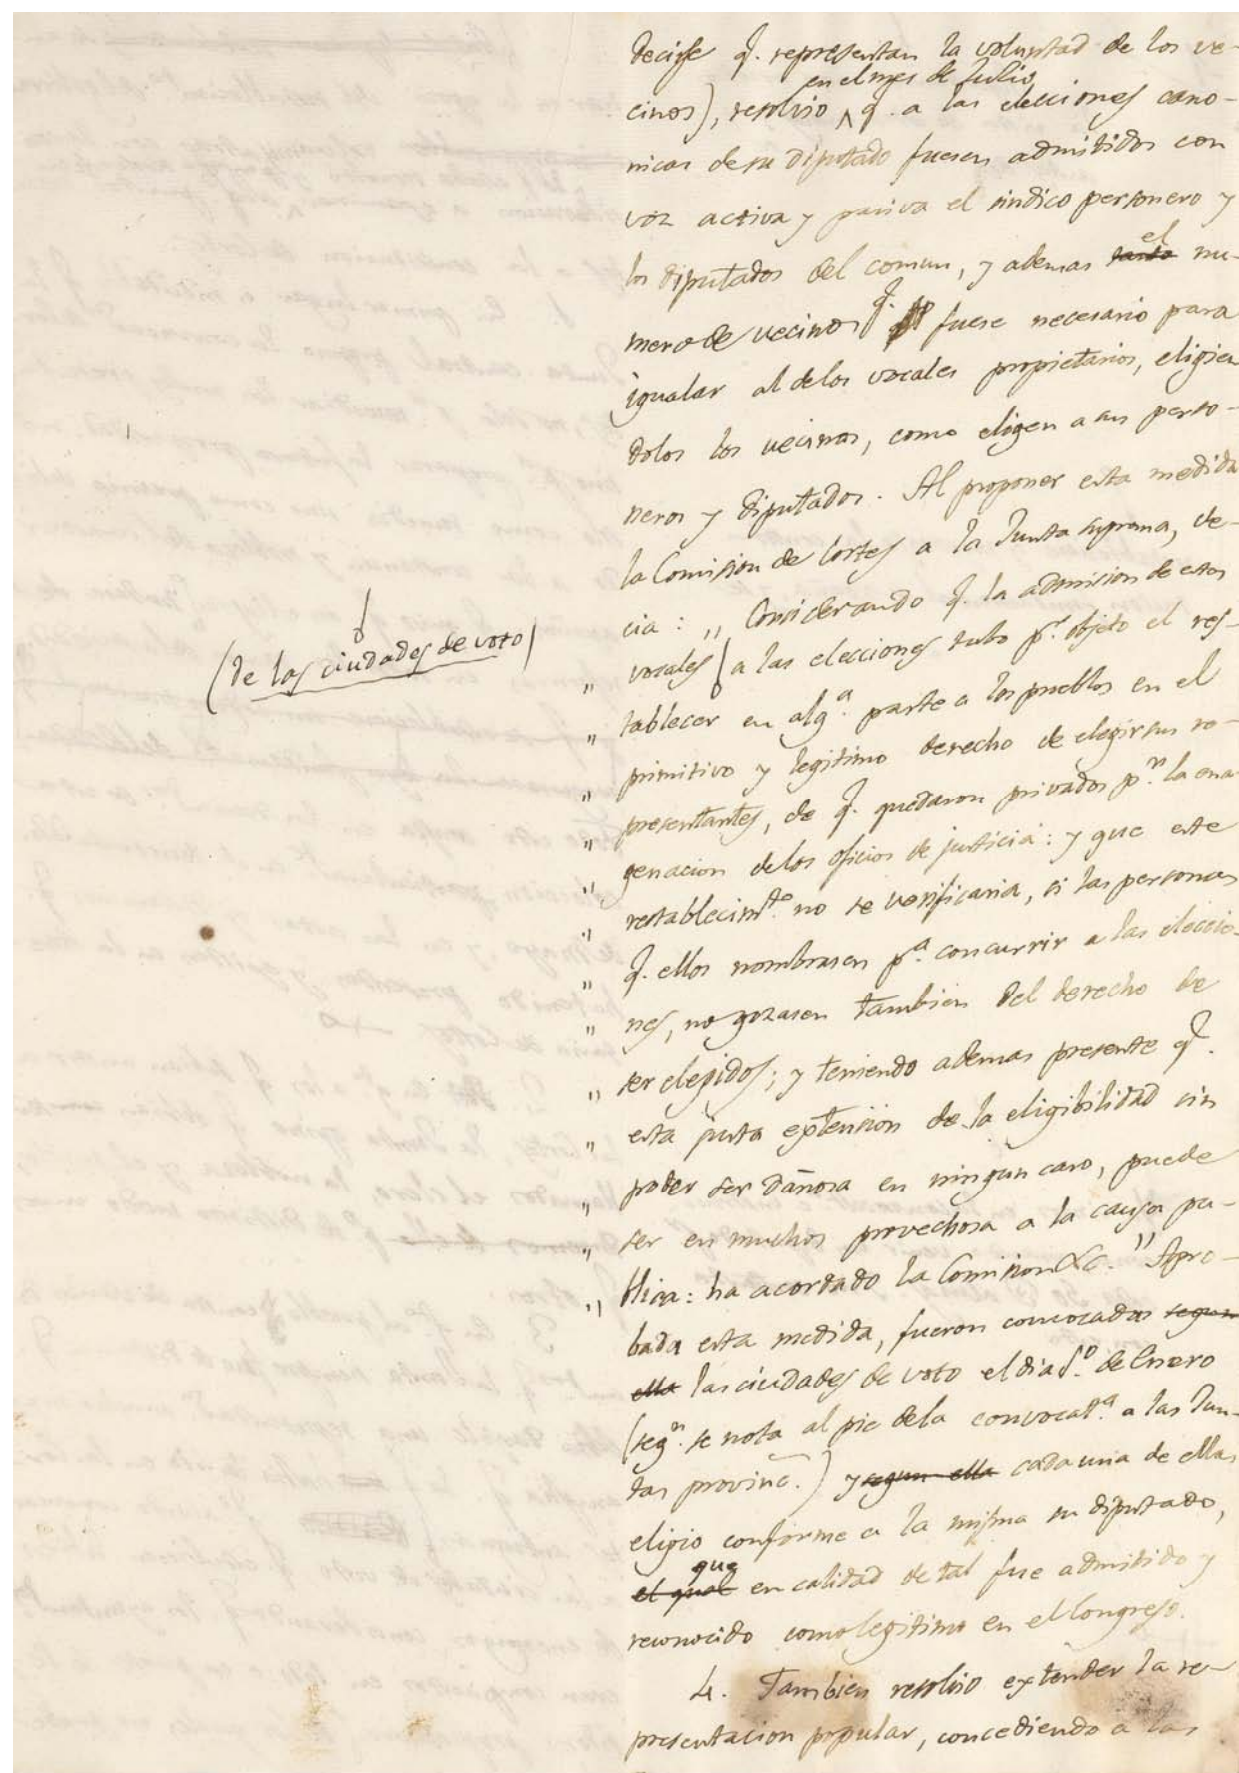 decirse q. representan la voluntad de los ve-
en el mes de Julio
cinos), resolvio q. a las elecciones cano-
nicas de su diputado fuesen admitidos con
voz activa y pasiva el sindico personero y
el
los diputados del comun, y ademas tanto nu-
mero de vecinos q. fuese necesario para
igualar al de los vocales propietarios, eligien
dolos los vecinos, como eligen a sus perso-
neros y diputados. Al proponer esta medida
la Comision de Cortes a la Junta suprema, de-
cia: „ Considerando q. la admision de estos
(de las ciudades de voto)
„ vocales a las elecciones tubo p.r objeto el res-
„ tablecer en alg.a parte a los pueblos en el
„ primitivo y legitimo derecho de elegir sus re-
„ presentantes, de q. quedaron privados p.r la ena-
„ genacion de los oficios de justicia: y que este
„ restablecim.to no se verificaria, si las personas
„ q. ellos nombrasen p.a concurrir a las eleccio-
„ nes, no gozasen tambien del derecho de
„ ser elegidos; y teniendo ademas presente q.
„ esta justa extension de la eligibilidad sin
„ poder ser dañosa en ningun caso, puede
„ ser en muchos provechosa a la causa pu-
„ blica: ha acordado la Comision &c." Apro-
bada esta medida, fueron convocadas segun
ella las ciudades de voto el dia 1.o de Enero
(seg.n se nota al pie de la convocat.a a las Jun-
tas provinc.) y segun ella cada una de ellas
eligio conforme a la misma su diputado,
que
el qual en calidad de tal fue admitido y
reconocido como legitimo en el Congreso.
4. Tambien resolvio extender la re-
presentacion popular, concediendo a las